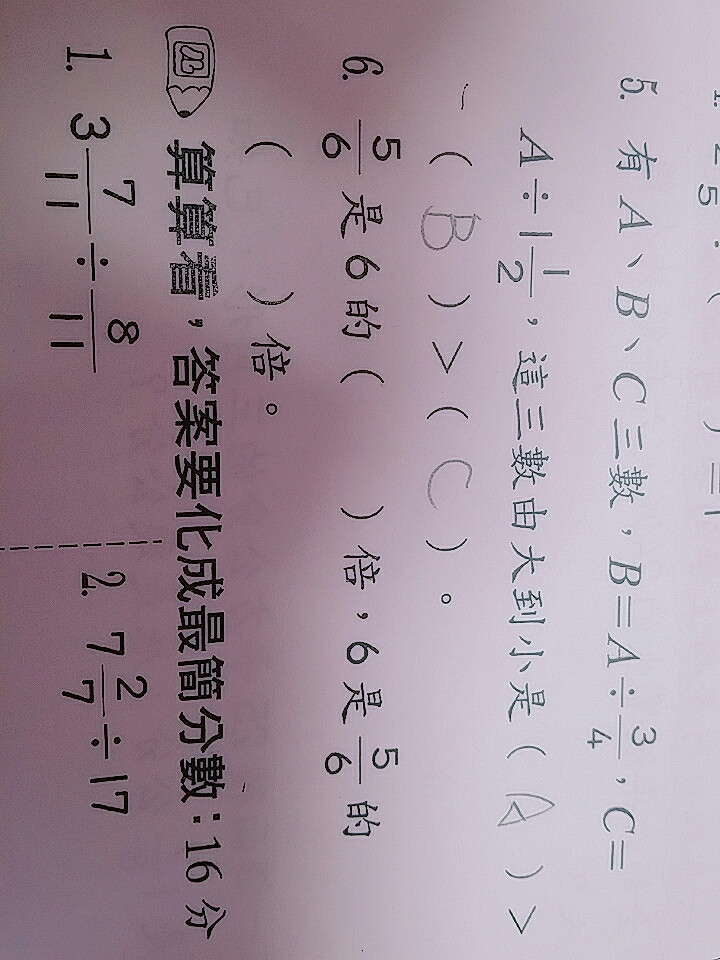 5. 有A、B、C三數，B=A÷3/4，C=
A÷1 1/2，這三數由大到小是（A）>
（B）>（C）。
6. 5/6是6的（ ）倍，6是5/6的
（ ）倍。
算算看，答案要化成最簡分數：16分
1. 3 7/11÷8/11 2. 7 2/7÷17